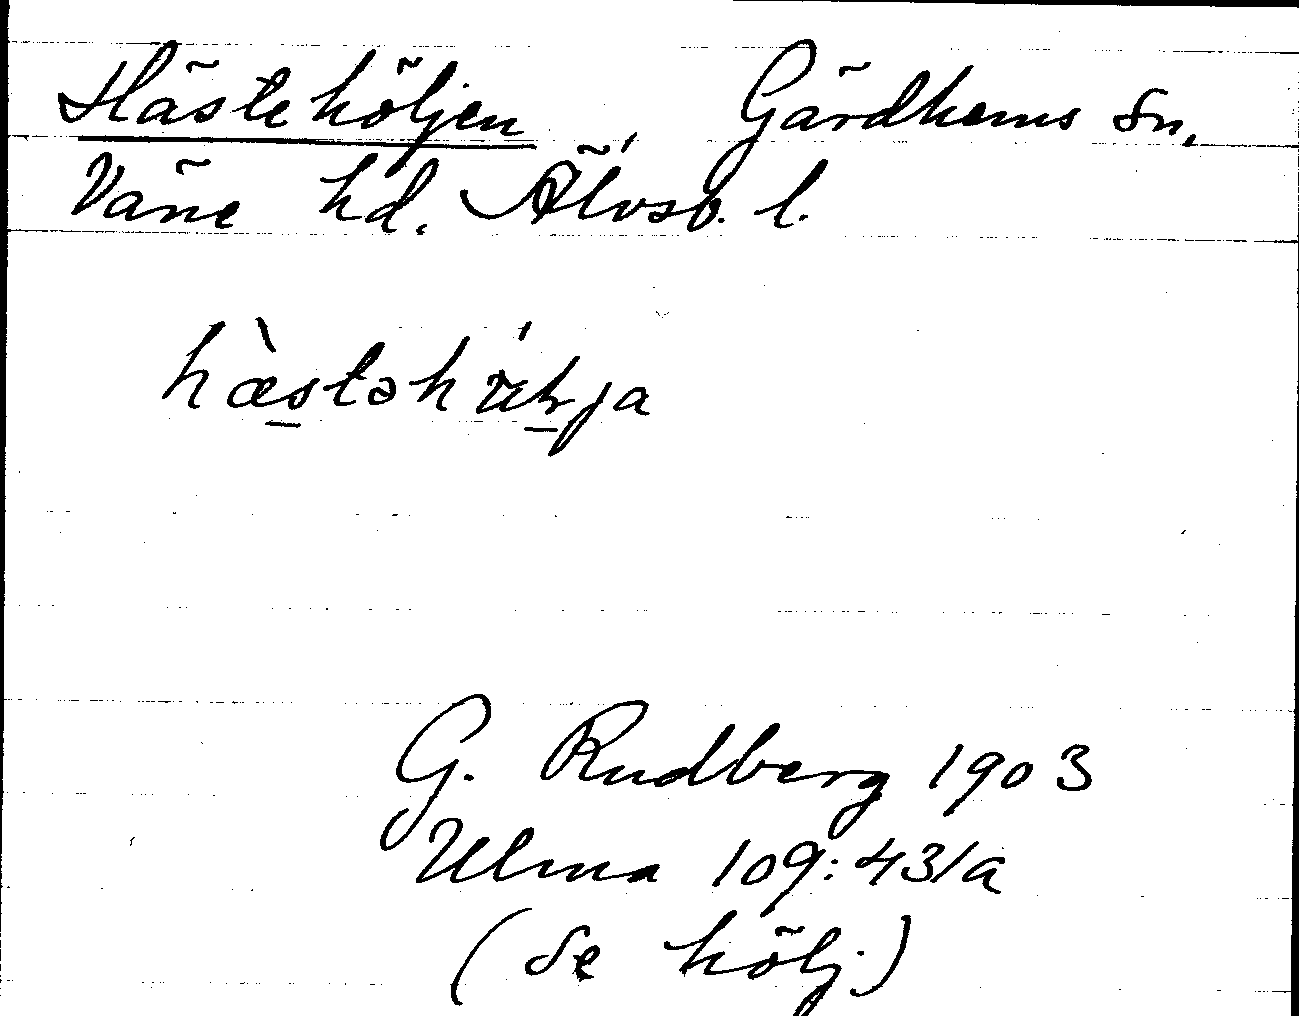 Hästehöljen, Gärdhems sn,
Väne hd. Älvsb. l.
hæ̀stəhø̍lja
G. Rudberg 1903
Ulma 109:431a
(Se hölj.)